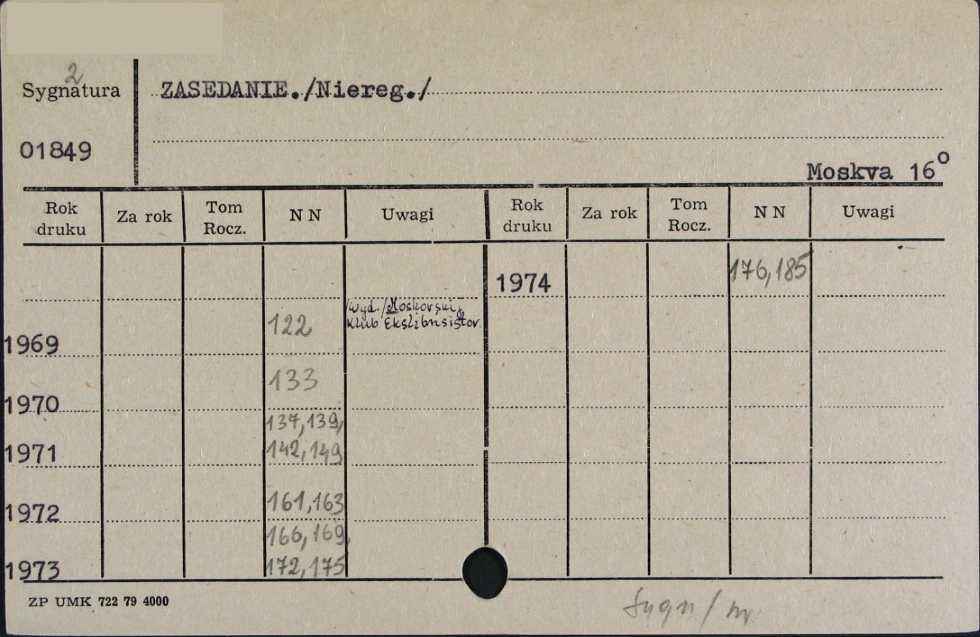 2
Sygnatura ZASEDANIE./Niereg./
01849
Moskva 16°
Rok druku Za rok Tom Rocz. N N Uwagi Rok druku Za rok Tom Rocz. N N Uwagi
1974 176,185
1969 122 /Wyd./Moskovskij
Klub Ekslibrisistov
1970 133
137,139,
1971 142,149
1972 161,163
166,169,
1973 172,175
ZP UMK 722 79 4000
Sygn/